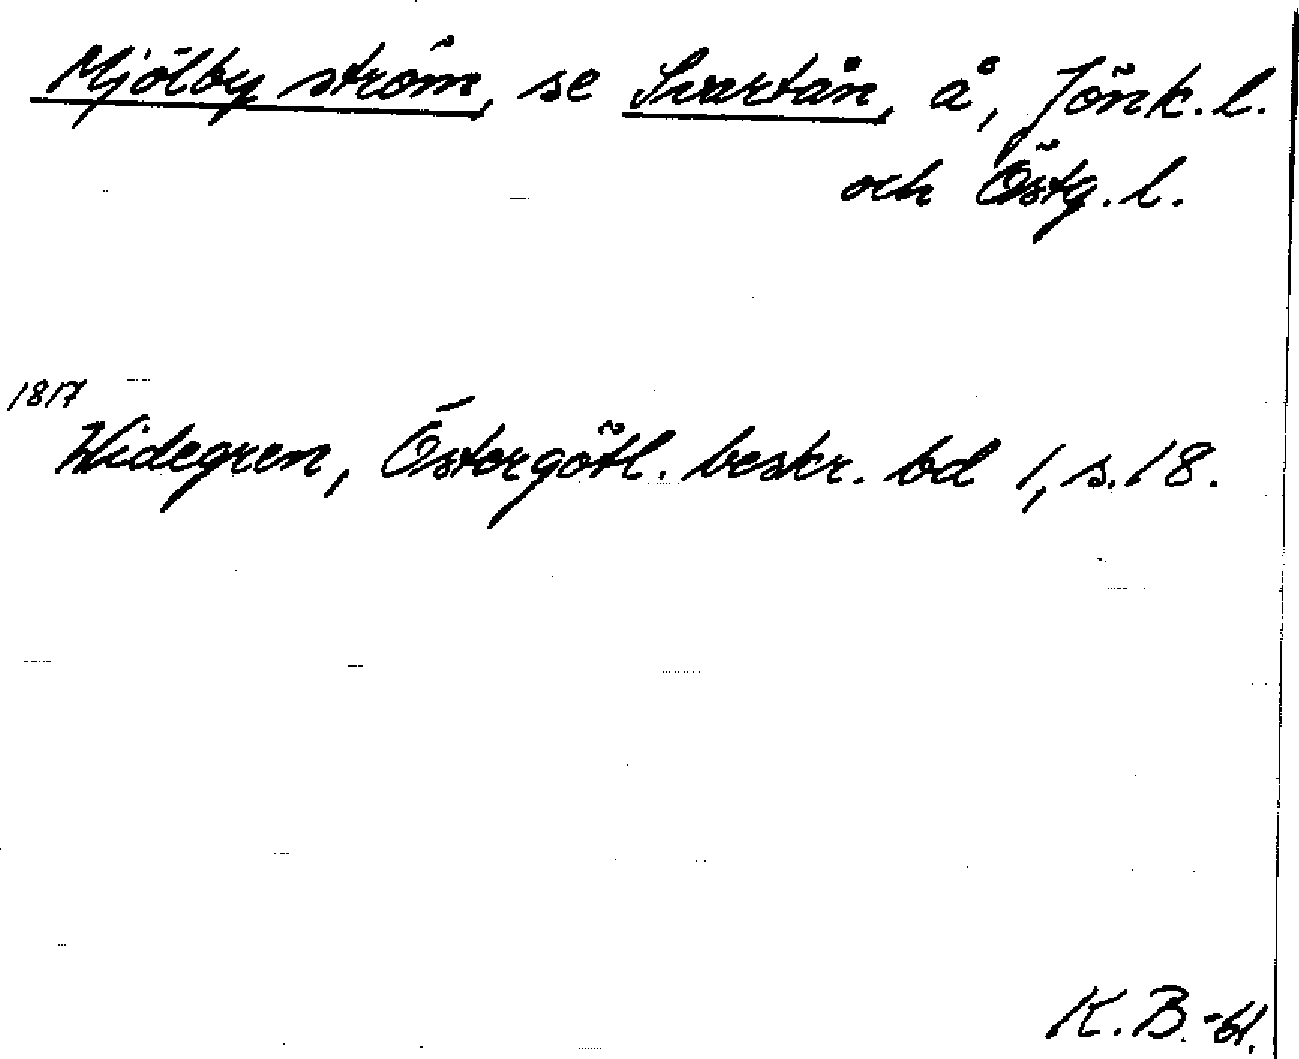 Mjölby ström, se Svartån, å, Jönk. l.
och Östg. l.
1817
Widegren, Östergötl. beskr. bd 1, s. 18.
K. B. -61.